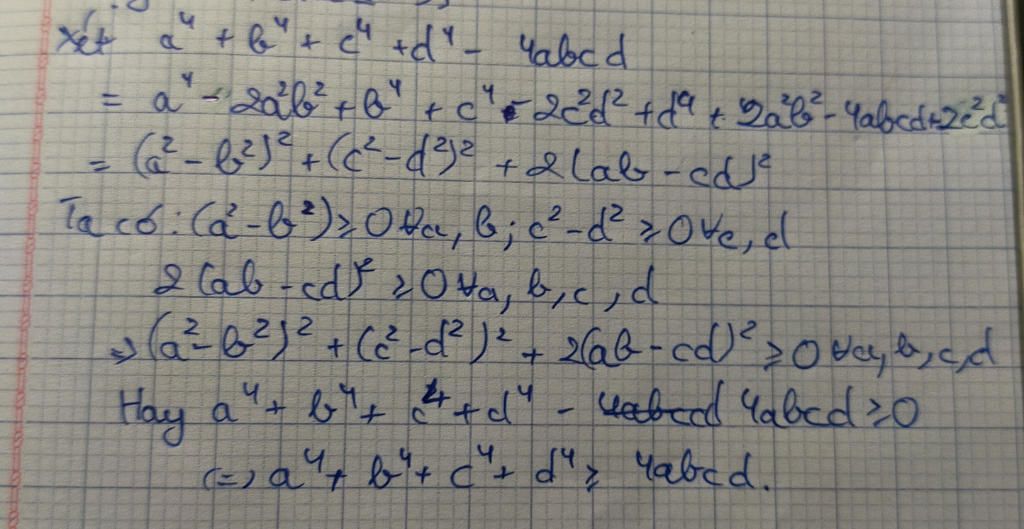 Xét a⁴ + b⁴ + c⁴ + d⁴ - 4abcd
= a⁴ - 2a²b² + b⁴ + c⁴ - 2c²d² + d⁴ + 2a²b² - 4abcd + 2c²d²
= (a² - b²)² + (c² - d²)² + 2(ab - cd)²
Ta có : (a² - b²) ≥ 0 ∀a, b ; c² - d² ≥ 0 ∀c, d
2(ab - cd)² ≥ 0 ∀a, b, c, d
⇒ (a² - b²)² + (c² - d²)² + 2(ab - cd)² ≥ 0 ∀a, b, c, d
Hay a⁴ + b⁴ + c⁴ + d⁴ - 4abcd 4abcd ≥ 0
(=) a⁴ + b⁴ + c⁴ + d⁴ ≥ 4abcd.